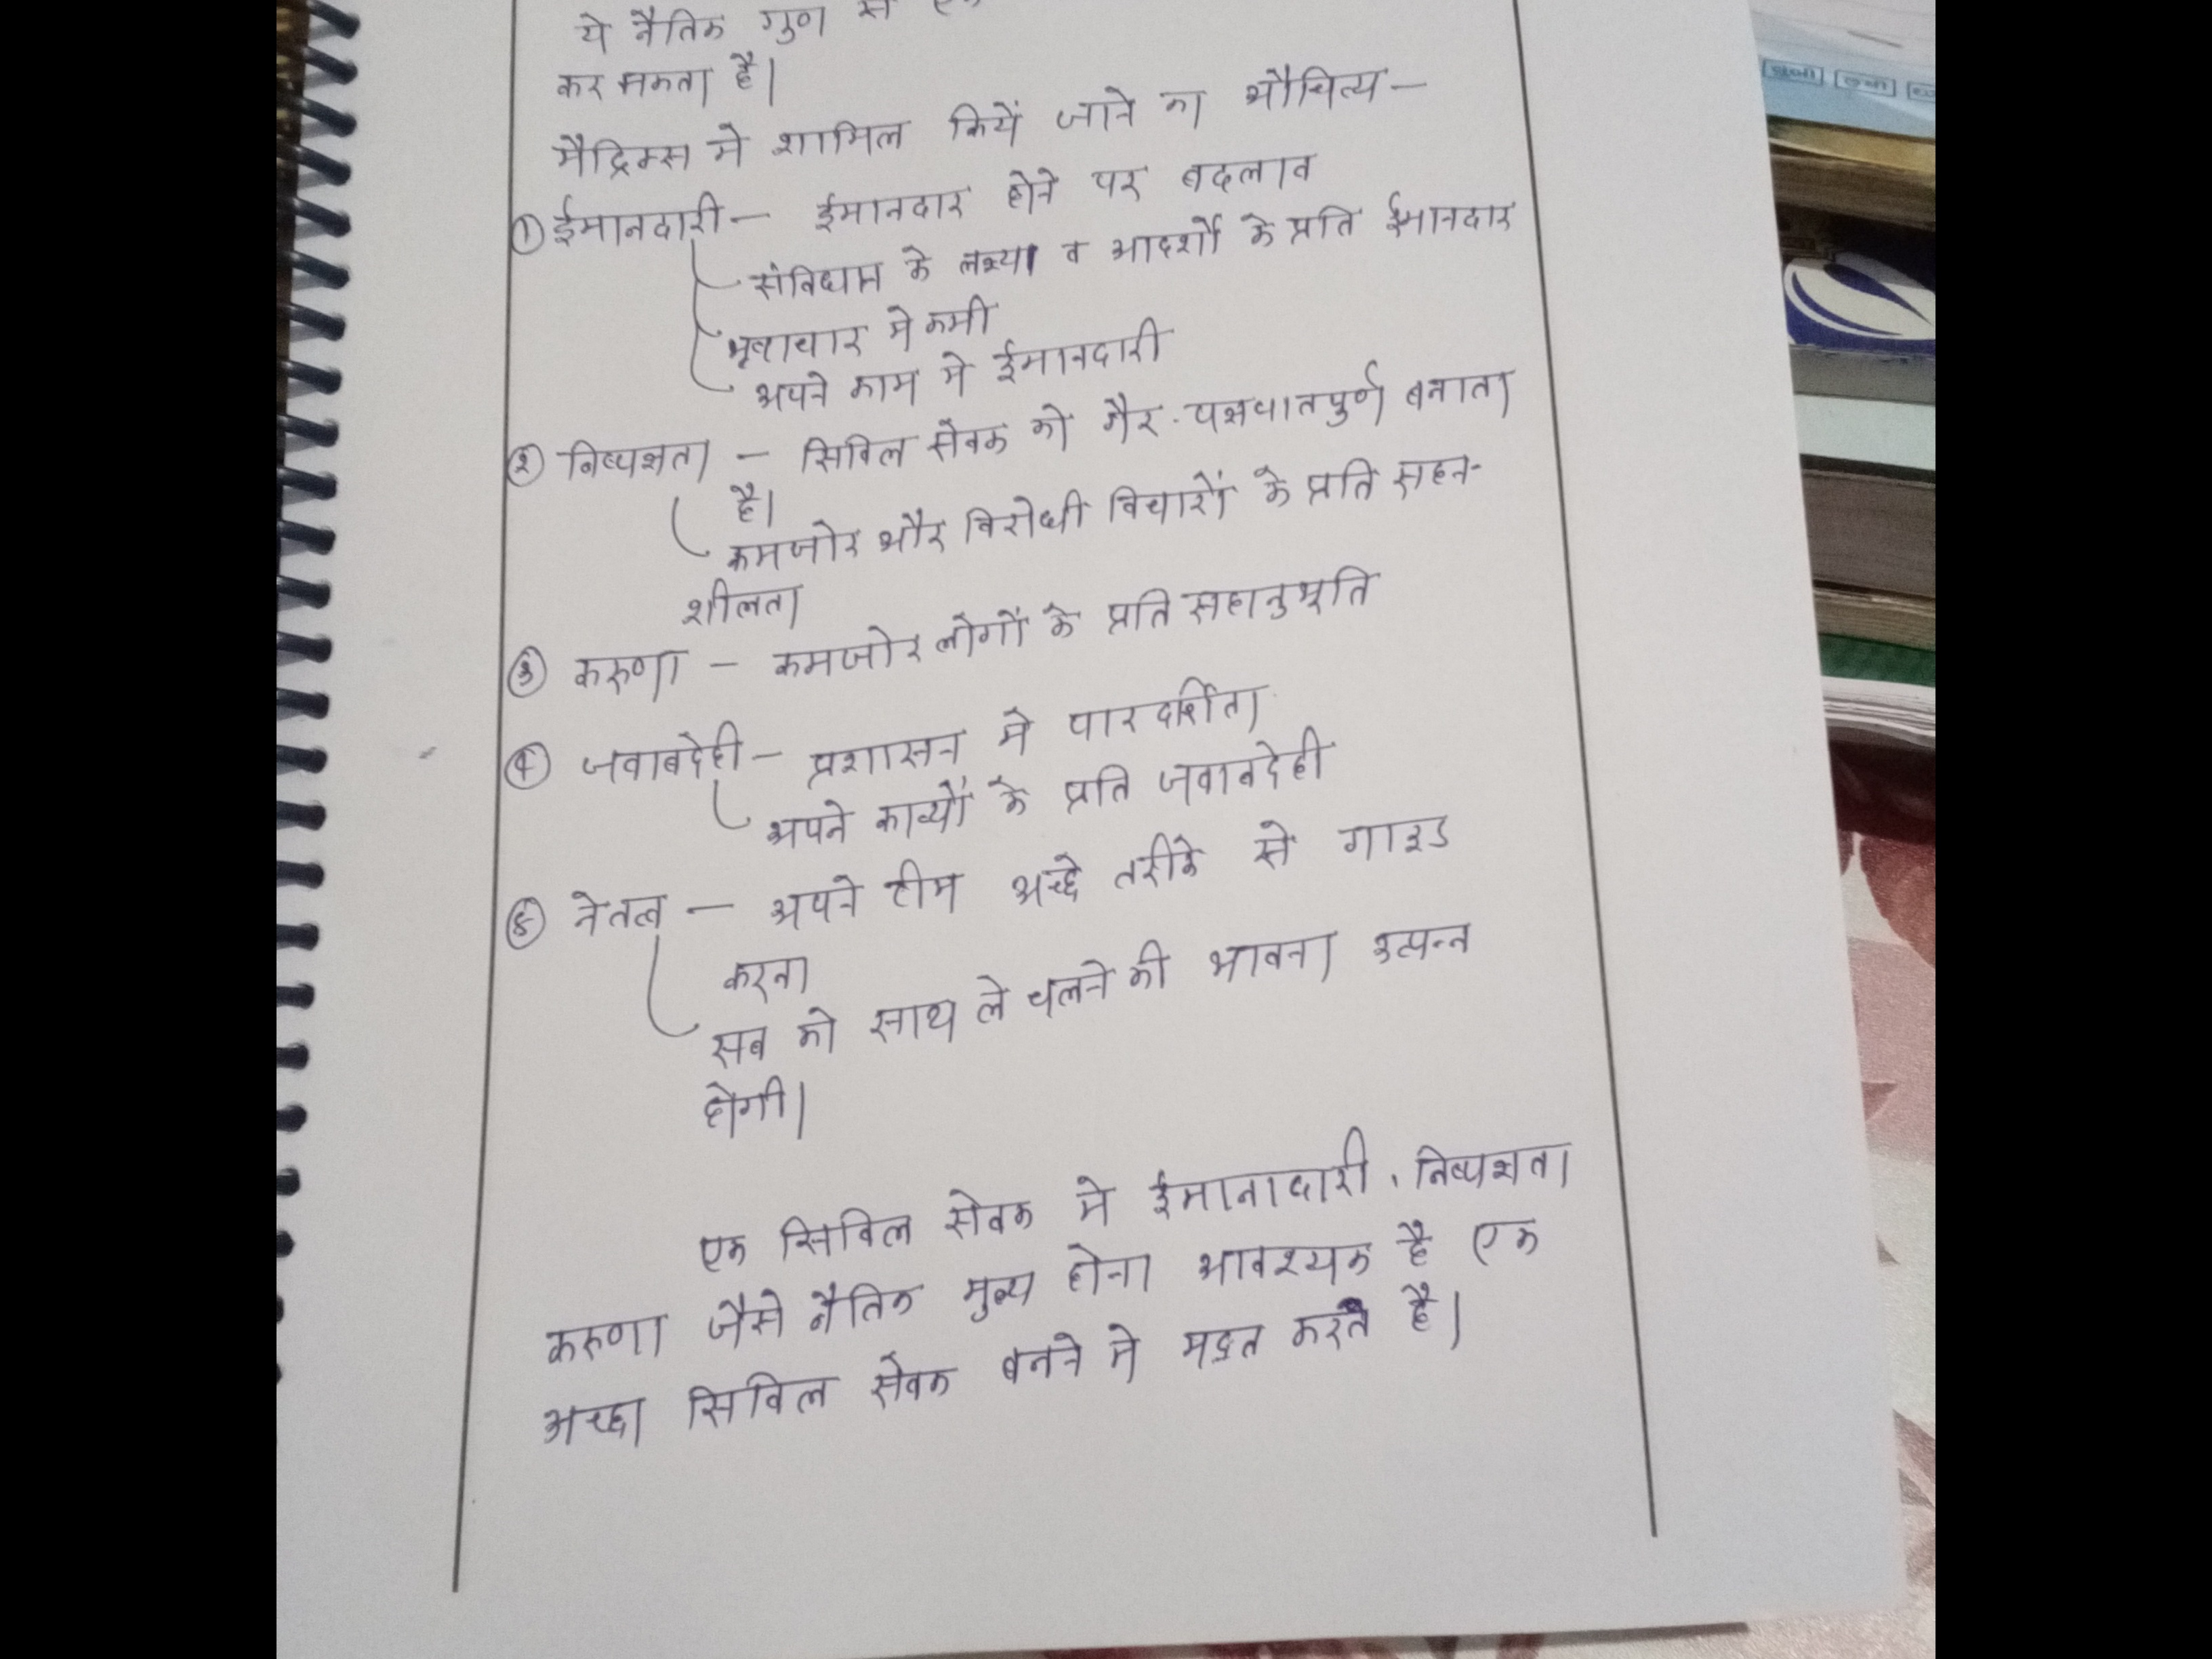 ये नैतिक गुण से
कर सकता है।
मैट्रिक्स मे शामिल कियें जाने का औचित्य —
① ईमानदारी — ईमानदार होने पर बदलाव
संविधान के लक्ष्यों व आदर्शों के प्रति ईमानदार
भ्रष्टाचार मे कमी
अपने काम मे ईमानदारी
② निष्पक्षता — सिविल सेवक को गैर-पक्षपातपुर्ण बनाता
है।
कमजोर और विरोधी विचारों के प्रति सहन-
शीलता
③ करुणा — कमजोर लोगों के प्रति सहानुभूति
④ जवाबदेही — प्रशासन मे पारदर्शिता
अपने कार्यों के प्रति जवाबदेही
⑤ नेतत्व — अपने टीम अच्छे तरीके से गाइड
करना
सब को साथ ले चलने की भावना उत्पन्न
होगी।
एक सिविल सेवक मे ईमानादारी, निष्पक्षता
करुणा जैसे नैतिक मुल्य होना आवश्यक है एक
अच्छा सिविल सेवक बनने मे मद्दत करते है।